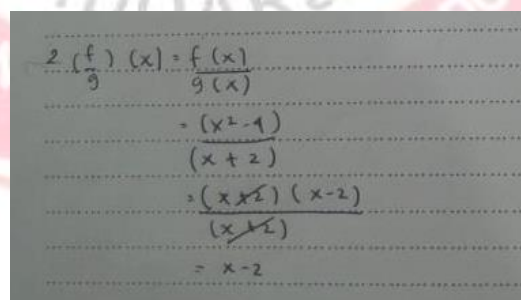 2 (f/g) (x) = f(x)/g(x)
= (x² - 4)/(x + 2)
= (x + 2) (x - 2)/(x + 2)
= x - 2